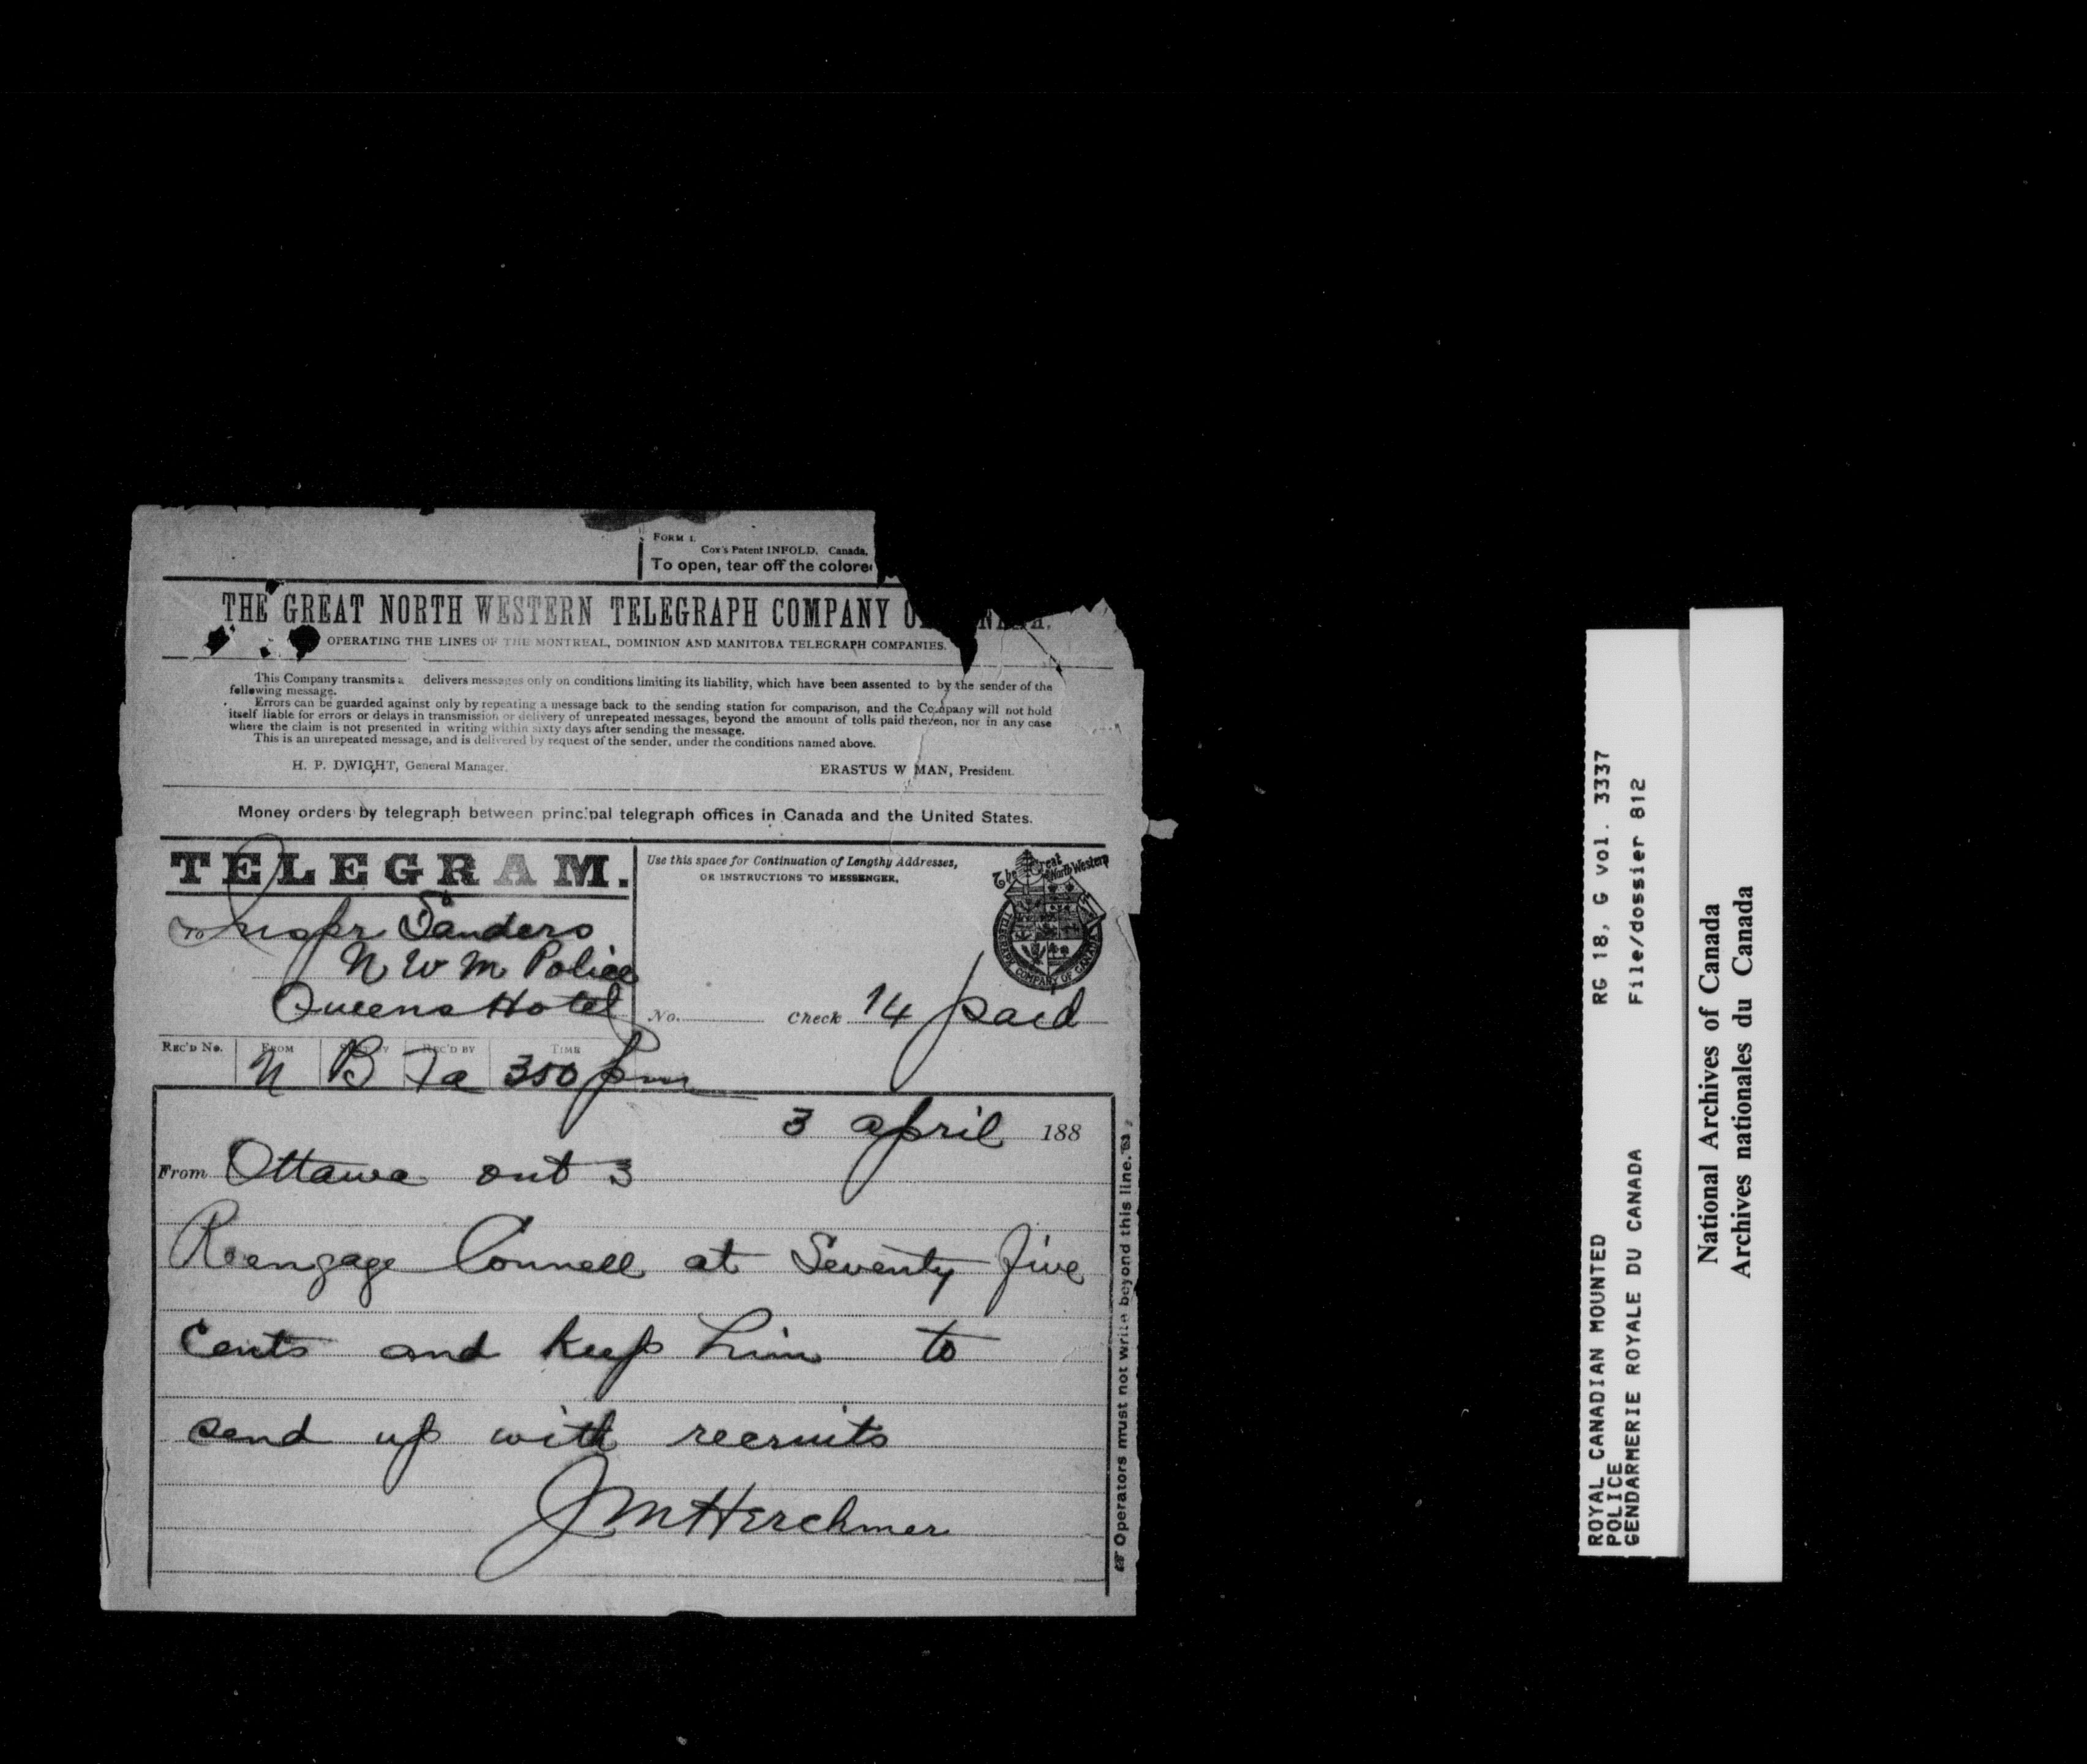 FORM 1.
Cox's Patent INFOLD. Canada.
To open, tear off the colore
THE GREAT NORTH WESTERN TELEGRAPH COMPANY O
OPERATING THE LINES OF THE MONTREAL, DOMINION AND MANITOBA TELEGRAPH COMPANIES.
This Company transmits a delivers messages only on conditions limiting its liability, which have been assented to by the sender of the
following message.
Errors can be guarded against only by repeating a message back to the sending station for comparison, and the Company will not hold
itself liable for errors or delays in transmission or delivery of unrepeated messages, beyond the amount of tolls paid thereon, nor in any case
where the claim is not presented in writing within sixty days after sending the message.
This is an unrepeated message, and is delivered by request of the sender, under the conditions named above.
H. P. DWIGHT, General Manager.
ERASTUS W MAN, President.
Money orders by telegraph between principal telegraph offices in Canada and the United States.
TELEGRAM.
Use this space for Continuation of Lengthy Addresses,
OR INSTRUCTIONS TO MESSENGER.
The Great North Western
TELEGRAPH COMPANY OF CANADA
To Inspr Sanders
N W M Police
Queens Hotel
No. Check 14 paid
REC'D No. FROM SENT BY REC'D BY TIME
N B Fa 350 pm
3 april 188
From Ottawa ont 3
Reengage Connell at Seventy five
Cents and keep him to
send up with recruits
J M Herchmer
Operators must not write beyond this line.
ROYAL CANADIAN MOUNTED RG 18, G vol. 3337
POLICE
GENDARMERIE ROYALE DU CANADA File/dossier 812
National Archives of Canada
Archives nationales du Canada